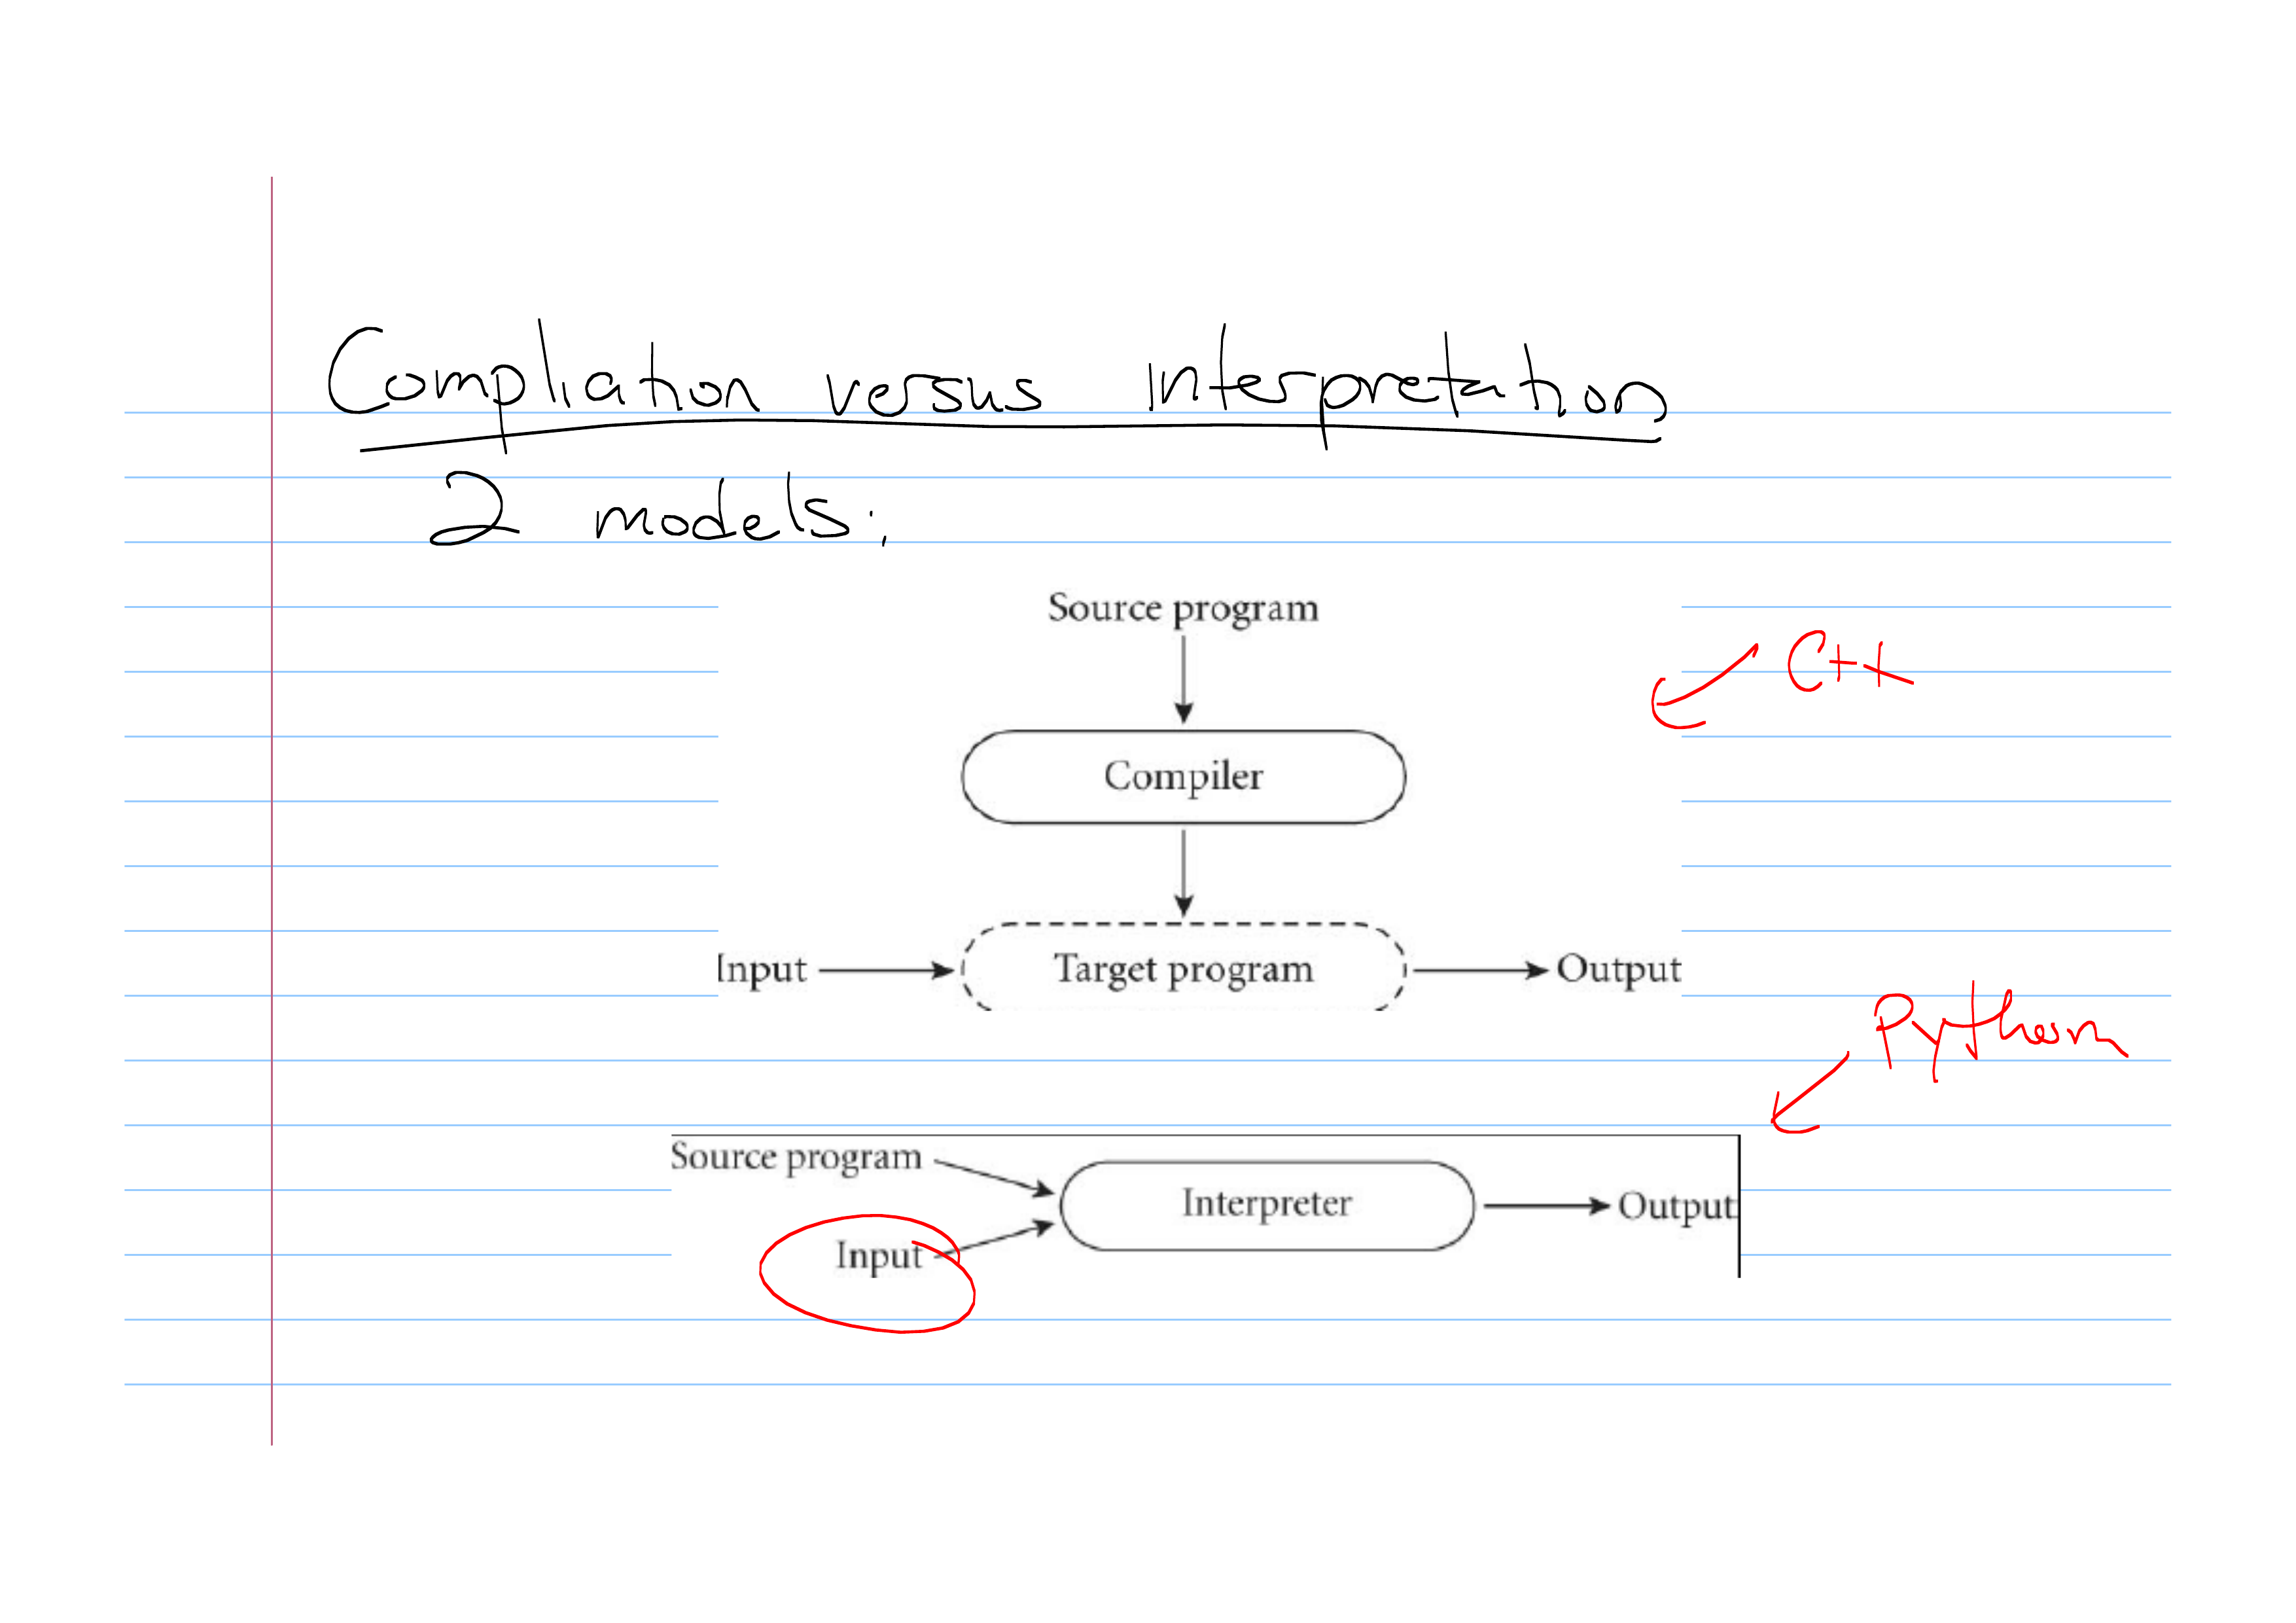 Compliation versus interpretation
2 models:
Source program
C++
Compiler
Input Target program Output
Python
Source program
Interpreter Output
Input